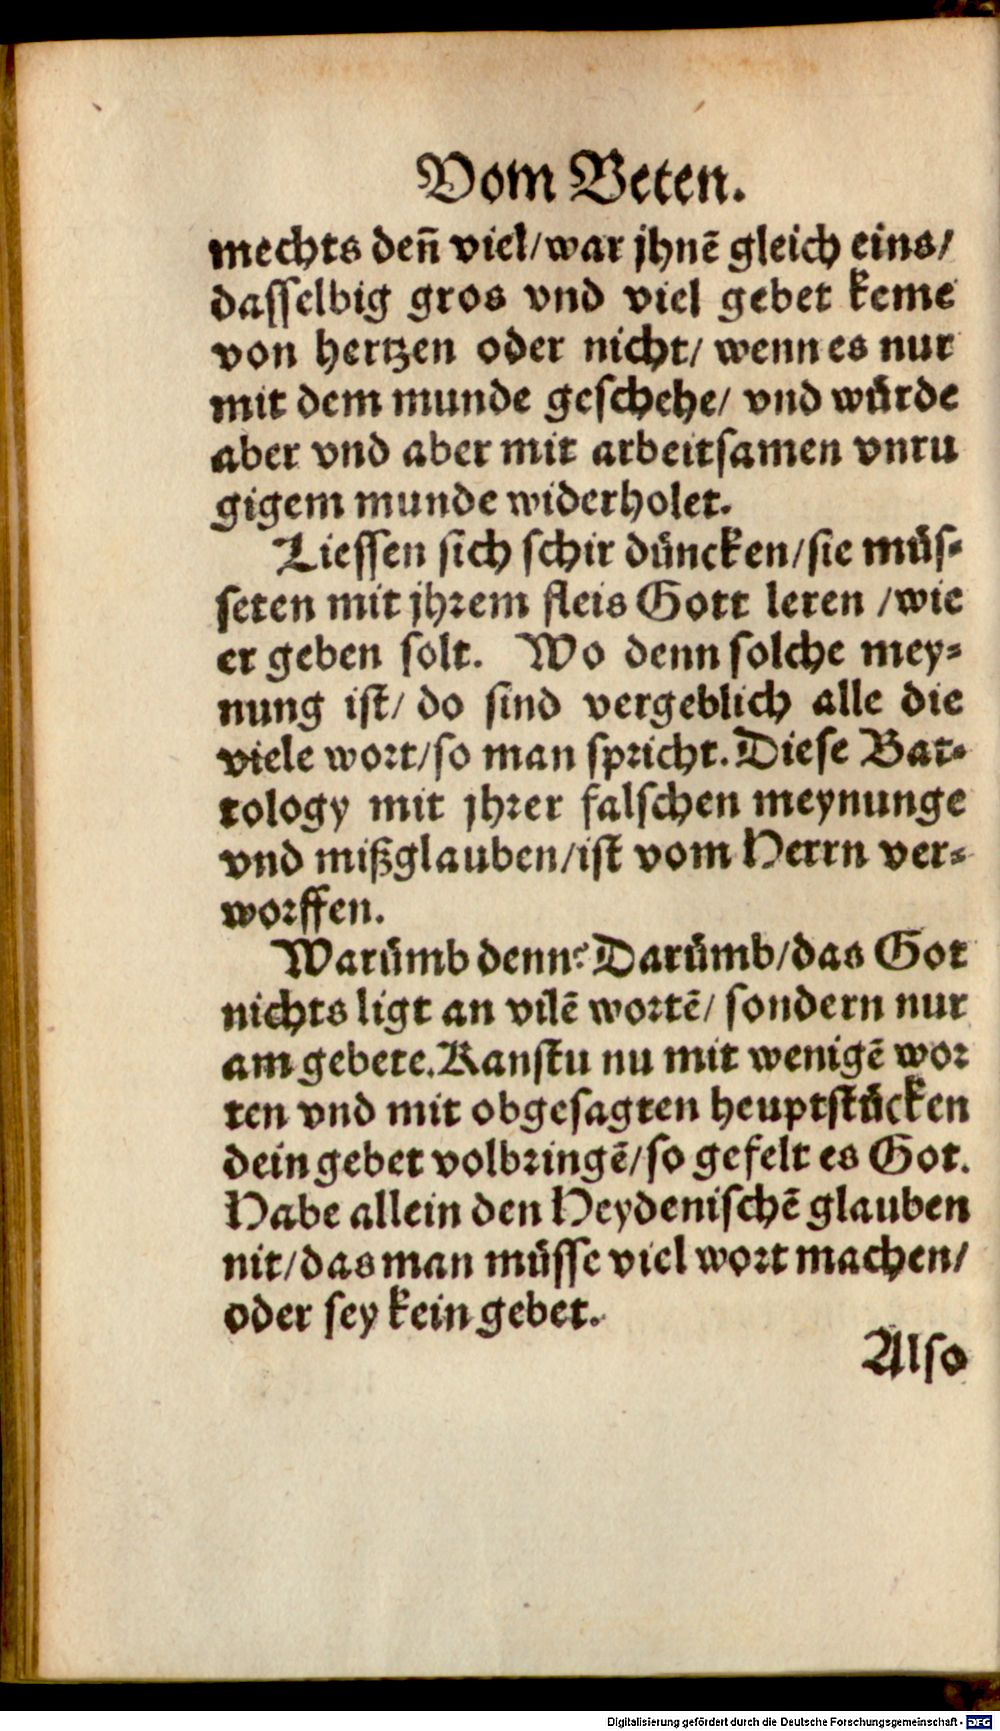 Vom Beten.
mechts deñ viel/war jhnẽ gleich eins/
dasselbig gros vnd viel gebet keme
von hertzen oder nicht/ wenn es nur
mit dem munde geschehe/ vnd würde
aber vnd aber mit arbeitsamen vnru
gigem munde widerholet.
Liessen sich schir düncken/sie müs-
seten mit jhrem fleis Gott leren /wie
er geben solt. Wo denn solche mey-
nung ist/ do sind vergeblich alle die
viele wort/so man spricht. Diese Bat-
tology mit jhrer falschen meynunge
vnd mißglauben/ist vom Herrn ver-
worffen.
Warümb denn? Darümb/das Got
nichts ligt an vilẽ wortẽ/ sondern nur
am gebete. Kanstu nu mit wenigẽ wor
ten vnd mit obgesagten heuptstücken
dein gebet volbringẽ/so gefelt es Got.
Habe allein den Heydenischẽ glauben
nit/das man müsse viel wort machen/
oder sey kein gebet.
Also
Digitalisierung gefördert durch die Deutsche Forschungsgemeinschaft - DFG